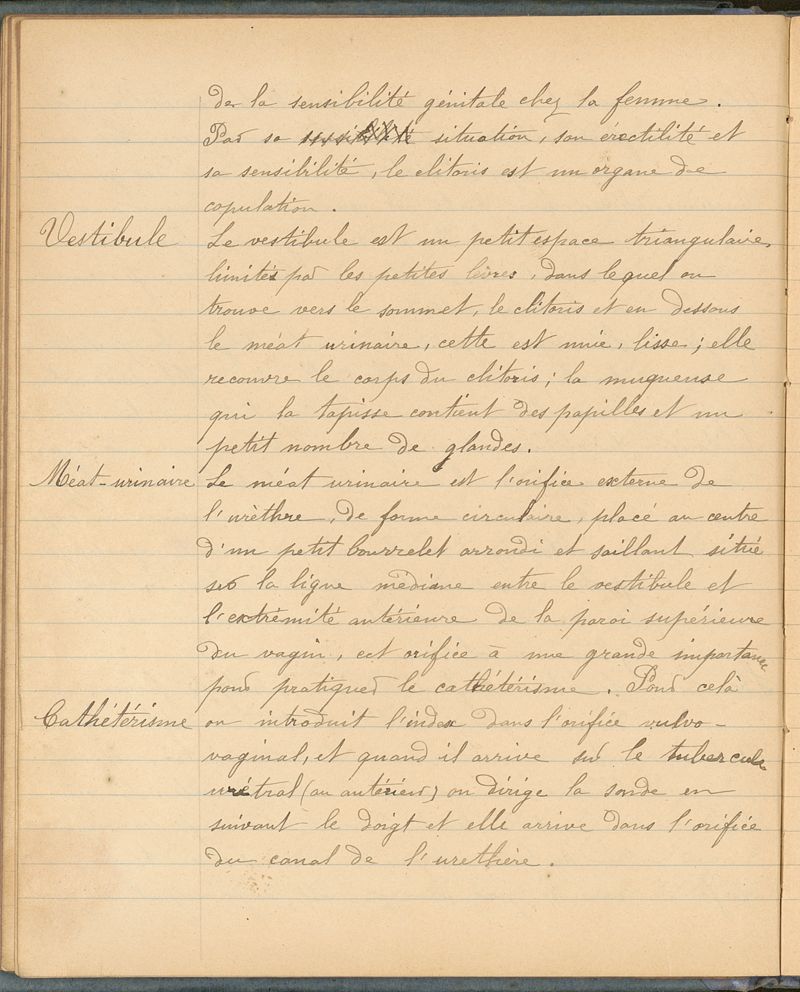 de la sensibilité génitale chez la femme.
Par sa sensibilité situation, son érectilité et
sa sensibilité, le clitoris est un organe de
copulation.
Vestibule Le vestibule est un petit espace triangulaire,
limité par les petites lèvres, dans lequel on
trouve vers le sommet, le clitoris et en dessous
le méat urinaire, cette est unie, lisse; elle
recouvre le corps du clitoris; la muqueuse
qui la tapisse contient des papilles et un
petit nombre de glandes.
Méat-urinaire Le méat urinaire est l'orifice externe de
l'urèthre, de forme circulaire, placé au centre
d'un petit bourrelet arrondi et saillant situé
sur la ligne médiane entre le vestibule et
l'extrémité antérieure de la paroi supérieure
du vagin, cet orifice a une grande importance
pour pratiquer le cathétérisme. Pour celà
Cathétérisme on introduit l'index dans l'orifice vulvo-
vaginal, et quand il arrive sur le tubercule
urétral (au antérieur) on dirige la sonde en
suivant le doigt et elle arrive dans l'orifice
du canal de l'urethère.